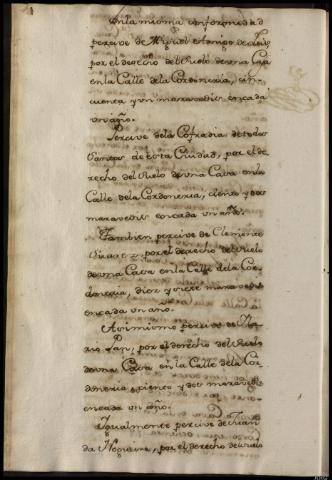 En la misma conformidad
percive de Miguel
por el derecho del Suelo de una Casa
en la Calle de la Cordoneria, cin-
cuenta y un maravedis en cada
un año.
Percive de la Cofradia de todos
Santos de esta Ciudad, por el de-
recho del Suelo de una Casa en la
Calle de la Cordoneria, ciento y dos
maravedis en cada un año.
Tambien percive de Clemente
por el derecho del Suelo
de una Casa en la Calle de la Cor-
doneria, diez y siete maravedis
en cada un año.
Asimismo percive de
por el derecho del Suelo
de una Casa en la Calle de la Cor-
doneria, ciento y dos maravedis
en cada un año.
Igualmente percive de Juan
de por el derecho del Suelo